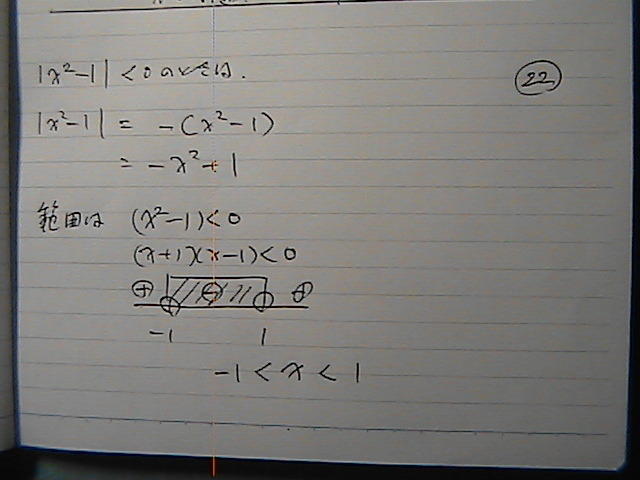 |x²-1| < 0 のときは.
22
|x²-1| = -(x²-1)
= -x²+1
範囲は (x²-1)<0
(x+1)(x-1)<0
⊕ ⊖ ⊕
-1 1
-1 < x < 1